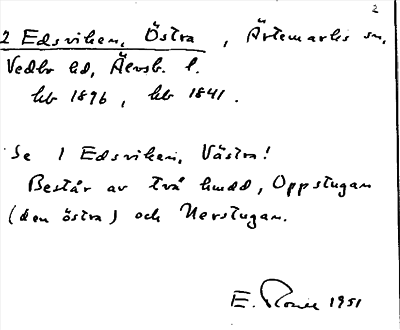 2
2 Edsviken, Östra, Ärtemarks sn,
Vedbo hd, Älvsb. l.
hb 1896, hb 1841.
Se 1 Edsviken, Västra!
Består av två hmdd, Oppstugan
(den östra) och Nerstugan.
E. 1951